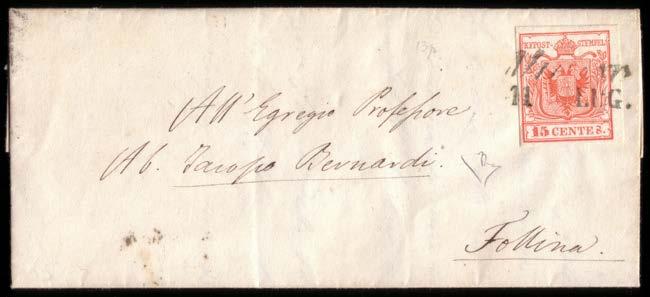 13p.
KKPOST-STEMPEL
11 LUG.
15 CENTES.
All' Egregio Professore
Ab. Jacopo Bernardi.
Follina.